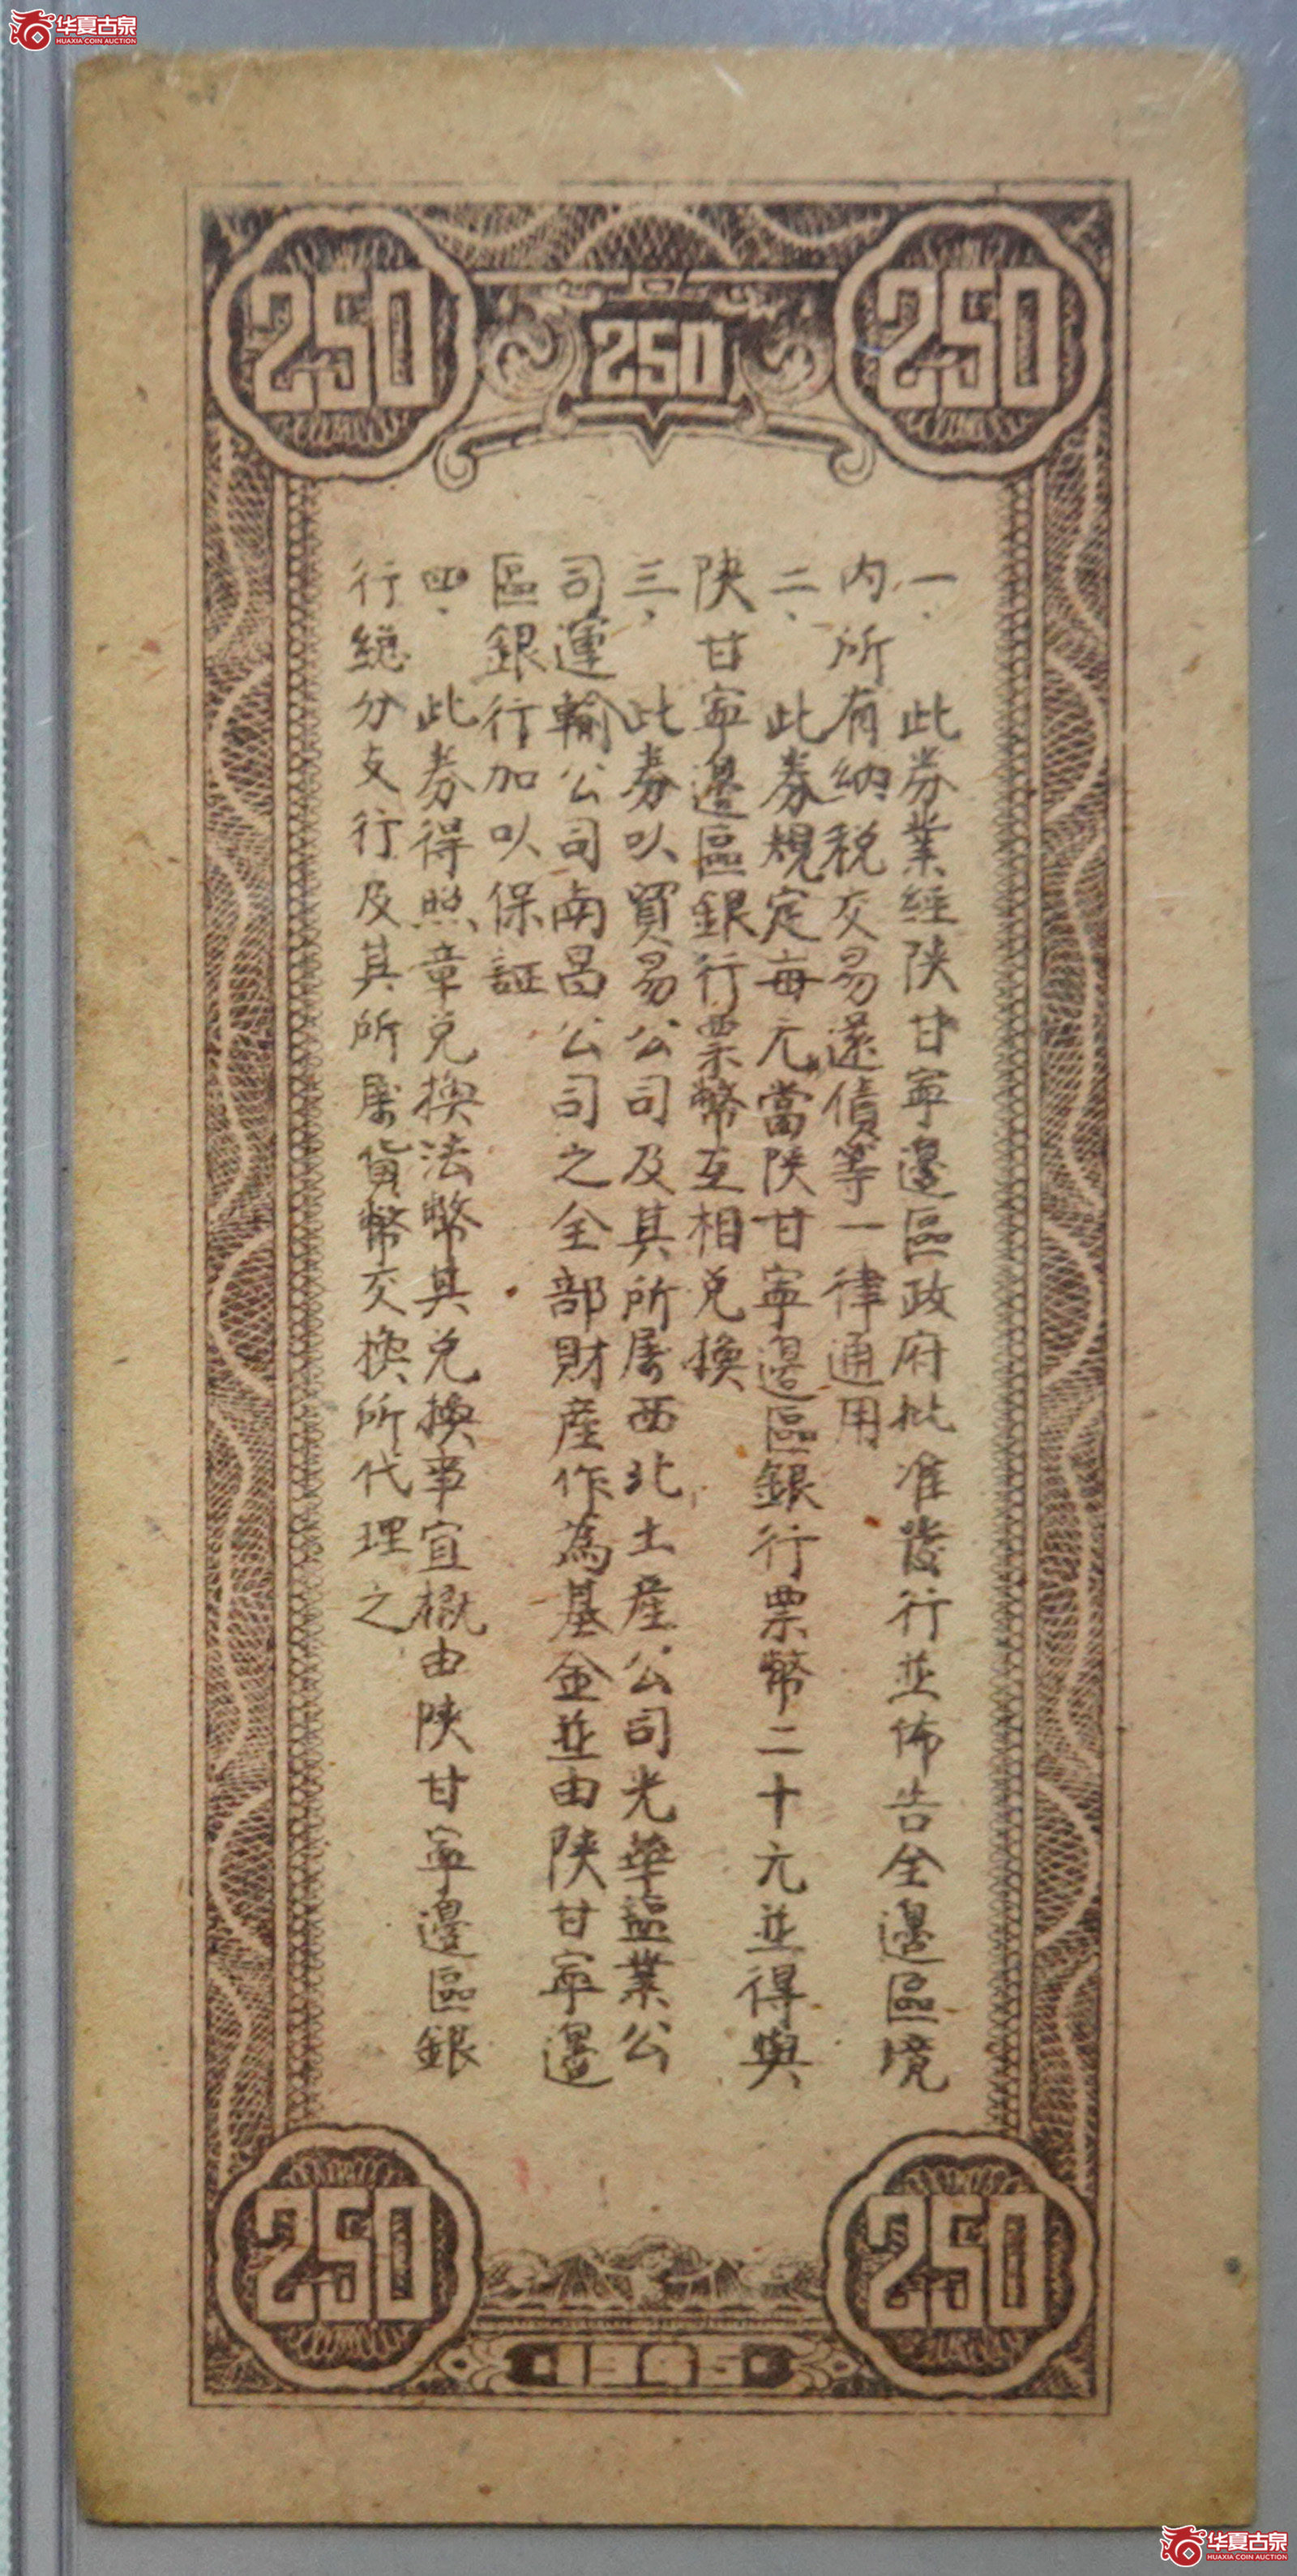 华夏古泉
HUAXIA COIN AUCTION
250
250
250
一、此券業經陝甘寧邊區政府批准發行並佈告全邊區境
内所有納稅交易還債等一律通用
二、此券規定每元當陝甘寧邊區銀行票幣二十元並得與
陝甘寧邊區銀行票幣互相兑換
三、此券以貿易公司及其所屬西北土產公司光華鹽業公
司運輸公司南昌公司之全部財產作為基金並由陝甘寧邊
區銀行加以保証
四、此券得照章兑換法幣其兑換事宜概由陝甘寧邊區銀
行總分支行及其所屬貨幣交換所代理之
250
250
1945
华夏古泉
HUAXIA COIN AUCTION